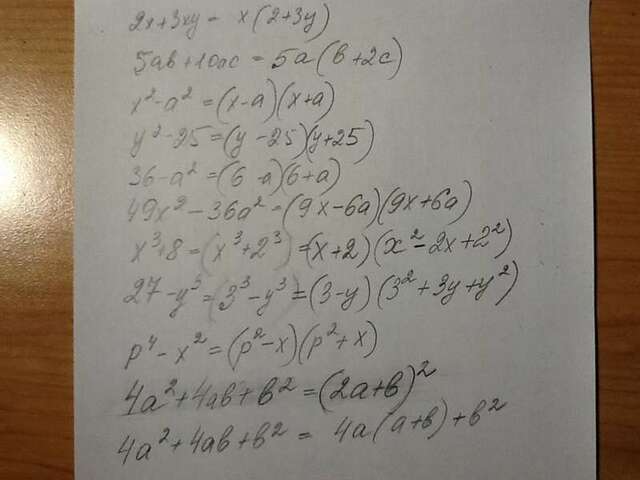 2x+3xy = x(2+3y)
5ab+10ac = 5a(b+2c)
x²-a² = (x-a)(x+a)
y²-25 = (y-25)(y+25)
36-a² = (6-a)(6+a)
49x²-36a² = (9x-6a)(9x+6a)
x³+8 = (x³+2³) = (x+2)(x²-2x+2²)
27-y³ = (3³-y³) = (3-y)(3²+3y+y²)
p⁴-x² = (p²-x)(p²+x)
4a²+4ab+b² = (2a+b)²
4a²+4ab+b² = 4a(a+b)+b²